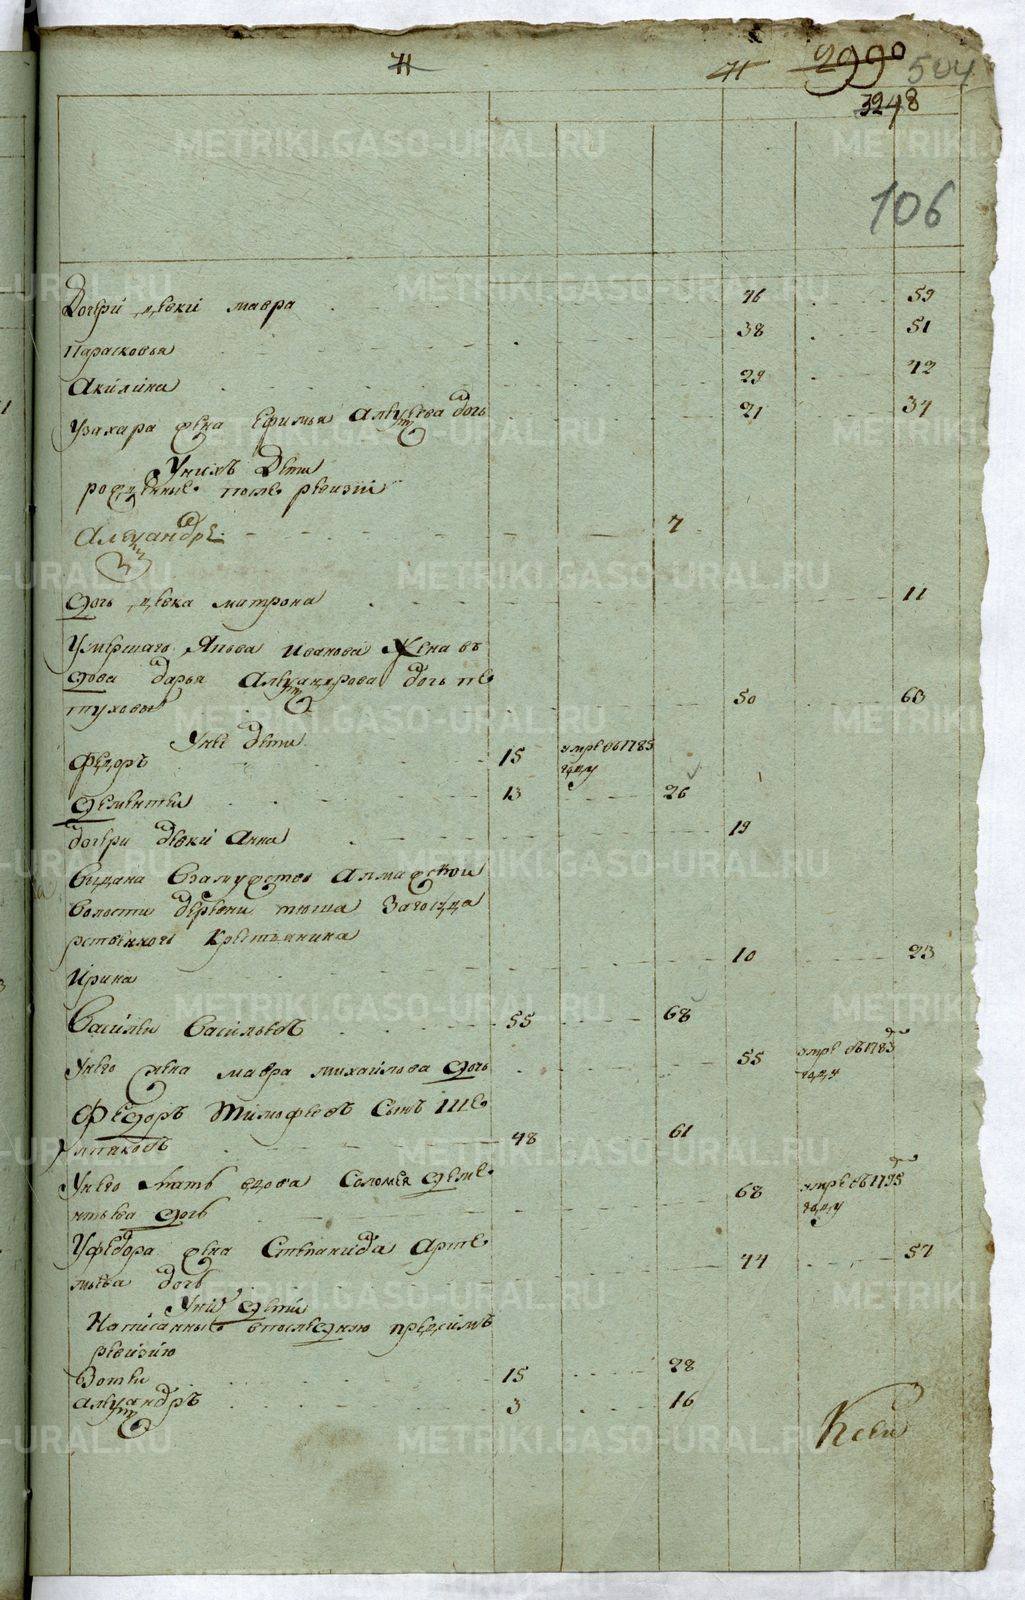 71 71 2990 504
3248
106
Дочери девки мавра 46 59
Парасковья 38 51
Акилина 29 42
Узахара жена ефимья алексеева дочь 21 34
Унихъ Дети
рожденные после ревизии
Александръ 7
дочь девка матрона 11
Умершаго Якова иванова Жена в
дова дарья Александрова дочь пе
туховы 50 63
Унее дети
Федоръ 15 умре въ 1785
году
дементеи 13 26
дочери девки Анна 19
выдана взамужство Ачмаской
волости деревни тюша За государ
рственного крестьянина
Ирина 10 23
Василеи Васильевъ 55 68
Унево жена мавра михайлова дочь 55 умре въ 1783
году
Федоръ Тимофеевъ Сынъ Ше
48 61
Унево Мать вдова Соломея деме
нтьева дочь 68 умре въ 1795
году
Уфедора жена Степанида Арте
мьева дочь 44 57
Унихъ дети
Написанные впоследнюю предсимъ
ревизию
Зотеи 15 28
Александръ 3 16
METRIKI.GASO-URAL.RU